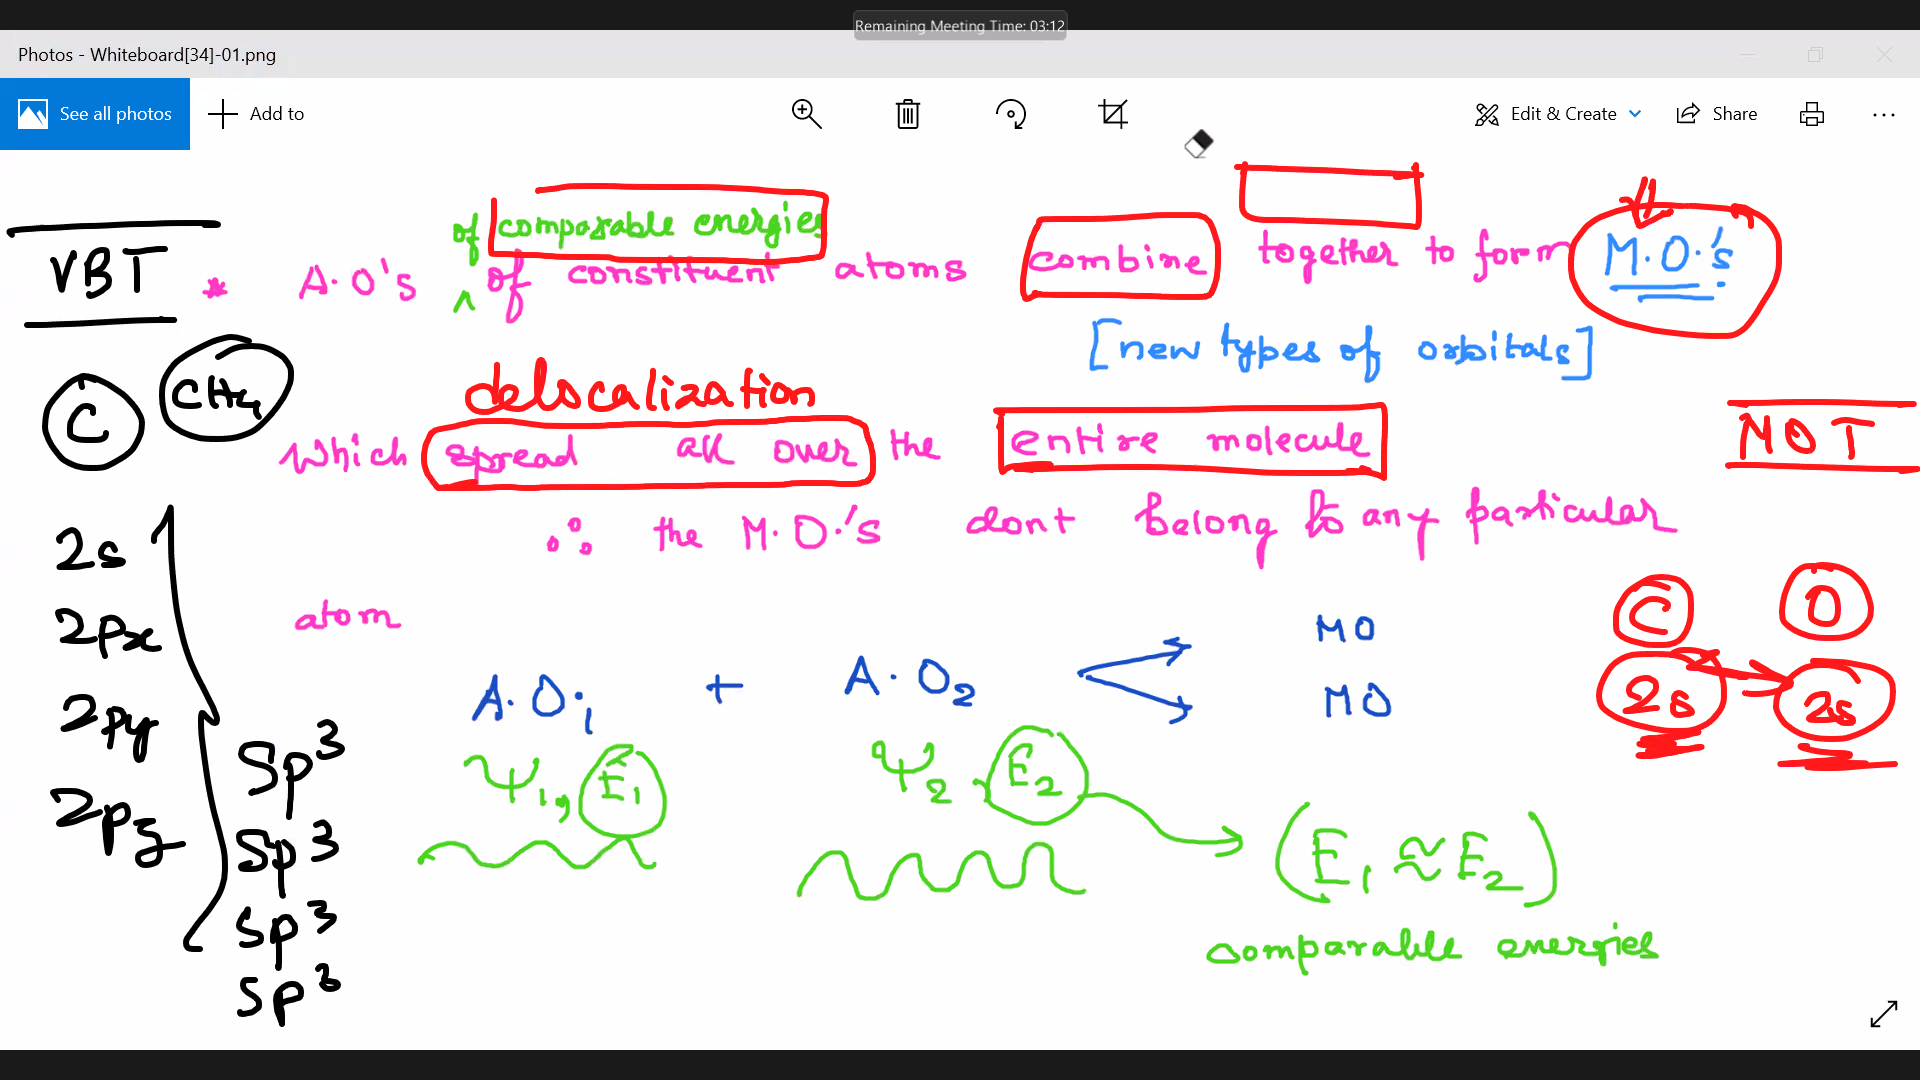 Remaining Meeting Time: 03:12
Photos - Whiteboard[34]-01.png
See all photos
Add to
Edit & Create
Share
VBT
of comparable energies
* A.O's ^ of constituent atoms combine together to form M.O.'s
[new types of orbitals]
C
CH4
delocalization
which spread all over the entire molecule
MOT
∴ the M.O.'s dont belong to any particular
atom
2s
2px
2py
2pz
sp³
sp³
sp³
sp³
A.O.1 + A.O2
MO
MO
C O
2s 2s
Ψ1, E1
Ψ2, E2
(E1 ≈ E2)
comparable energies